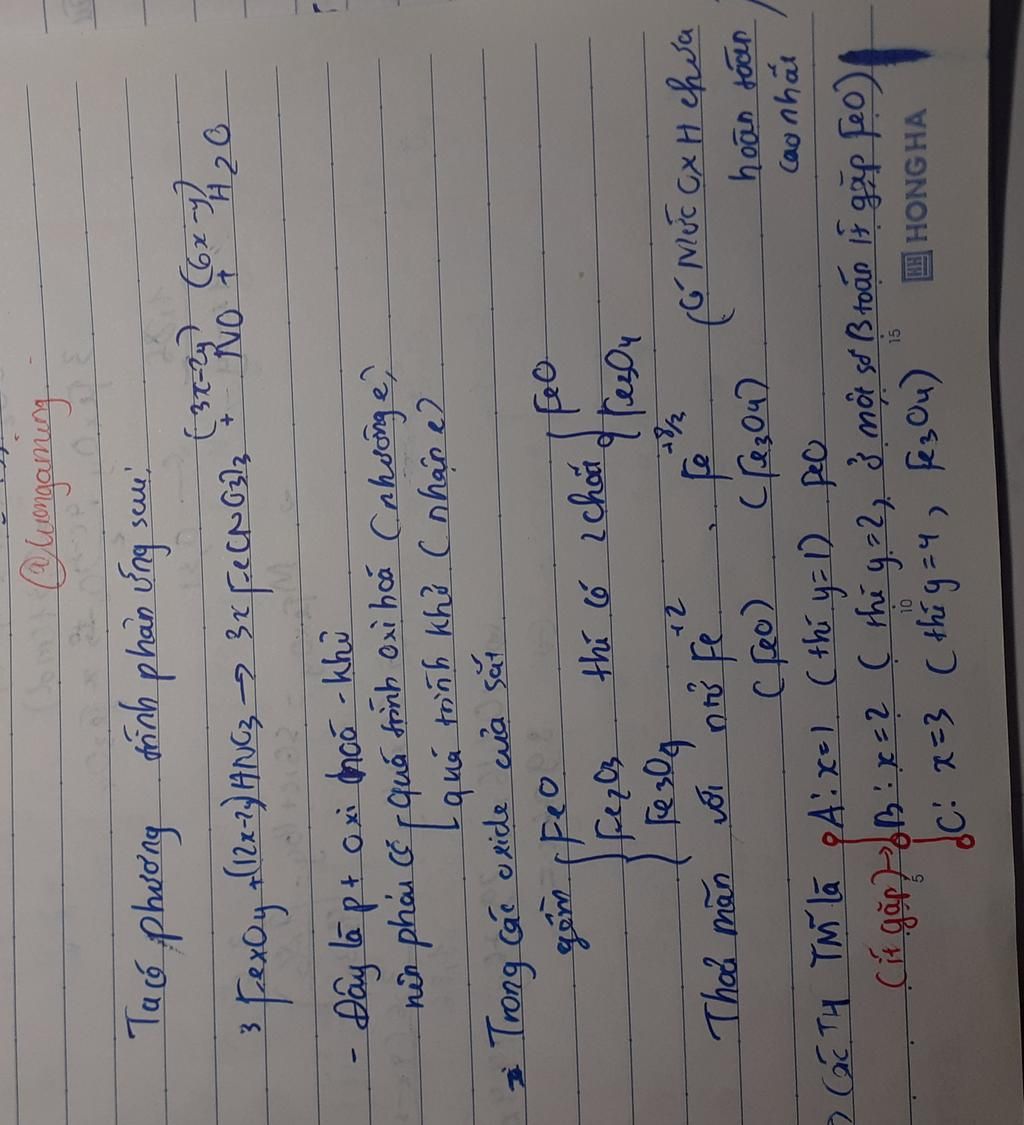 @luongaming
Ta có phương trình phản ứng sau:
3 FexOy + (12x-2y) HNO3 → 3x Fe(NO3)3 + (3x-2y) NO + (6x-y) H2O
- Đây là p+ oxi hoá - khử
nên phải có [ quá trình oxi hoá (nhường e)
[ quá trình khử (nhận e)
Trong các oxide của sắt
gồm { FeO
Fe2O3 thì có 2 chất { FeO
Fe3O4 Fe3O4
Thoả mãn với ntử Fe+2 , Fe+8/3 (Có Mức OXH chưa
(FeO) (Fe3O4) hoàn toàn
cao nhất
) Các TH TM là A: x=1 (thì y=1) FeO
(ít gặp) → B: x=2 (thì y=2, ở một số B toán ít gặp FeO)
C: x=3 (thì y=4, Fe3O4)
5 10 15
HONG HA